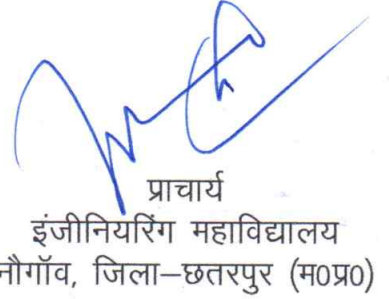 प्राचार्य
इंजीनियरिंग महाविद्यालय
नौगॉव, जिला–छतरपुर (म0प्र0)